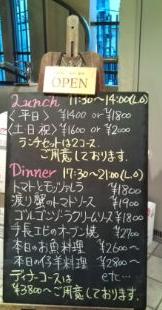 OPEN
Lunch 11:30~14:00(L.O)
〈平日〉 ¥1400 or ¥1800
〈土日祝〉 ¥1600 or ¥2000
ランチセットは2コース
ご用意しております。
Dinner 17:30~21:00(L.O)
トマトとモッツァレラ ¥1800
渡り蟹のトマトソース ¥1900
ゴルゴンゾーラクリームソース ¥1800
手長エビのオーブン焼 ¥2700
本日のお魚料理 ¥2600~
本日の仔羊料理 ¥2800~
ディナーコースは etc...
¥3800~ご用意しております。